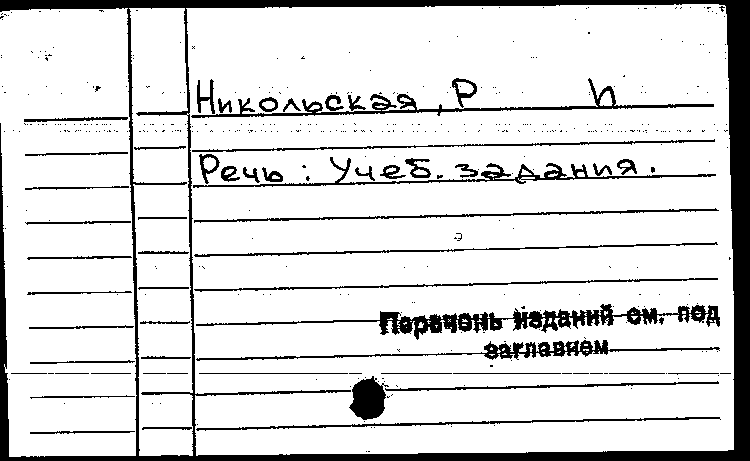 Никольская, Р И
Речь : Учеб. задания.
Перечень изданий см. под
заглавием